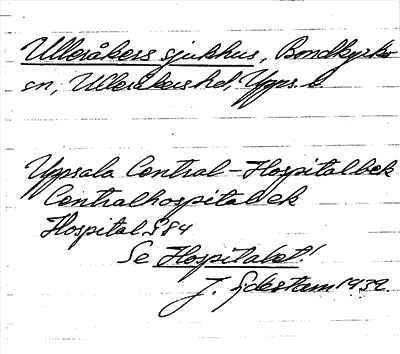 Ulleråkers sjukhus, Bondkyrko
sn, Ulleråkers hd, Upps. l.
Uppsala Central-Hospital bek
Centralhospital ek
Hospital S84
Se Hospitalet!
J. Sjdestam 1939.